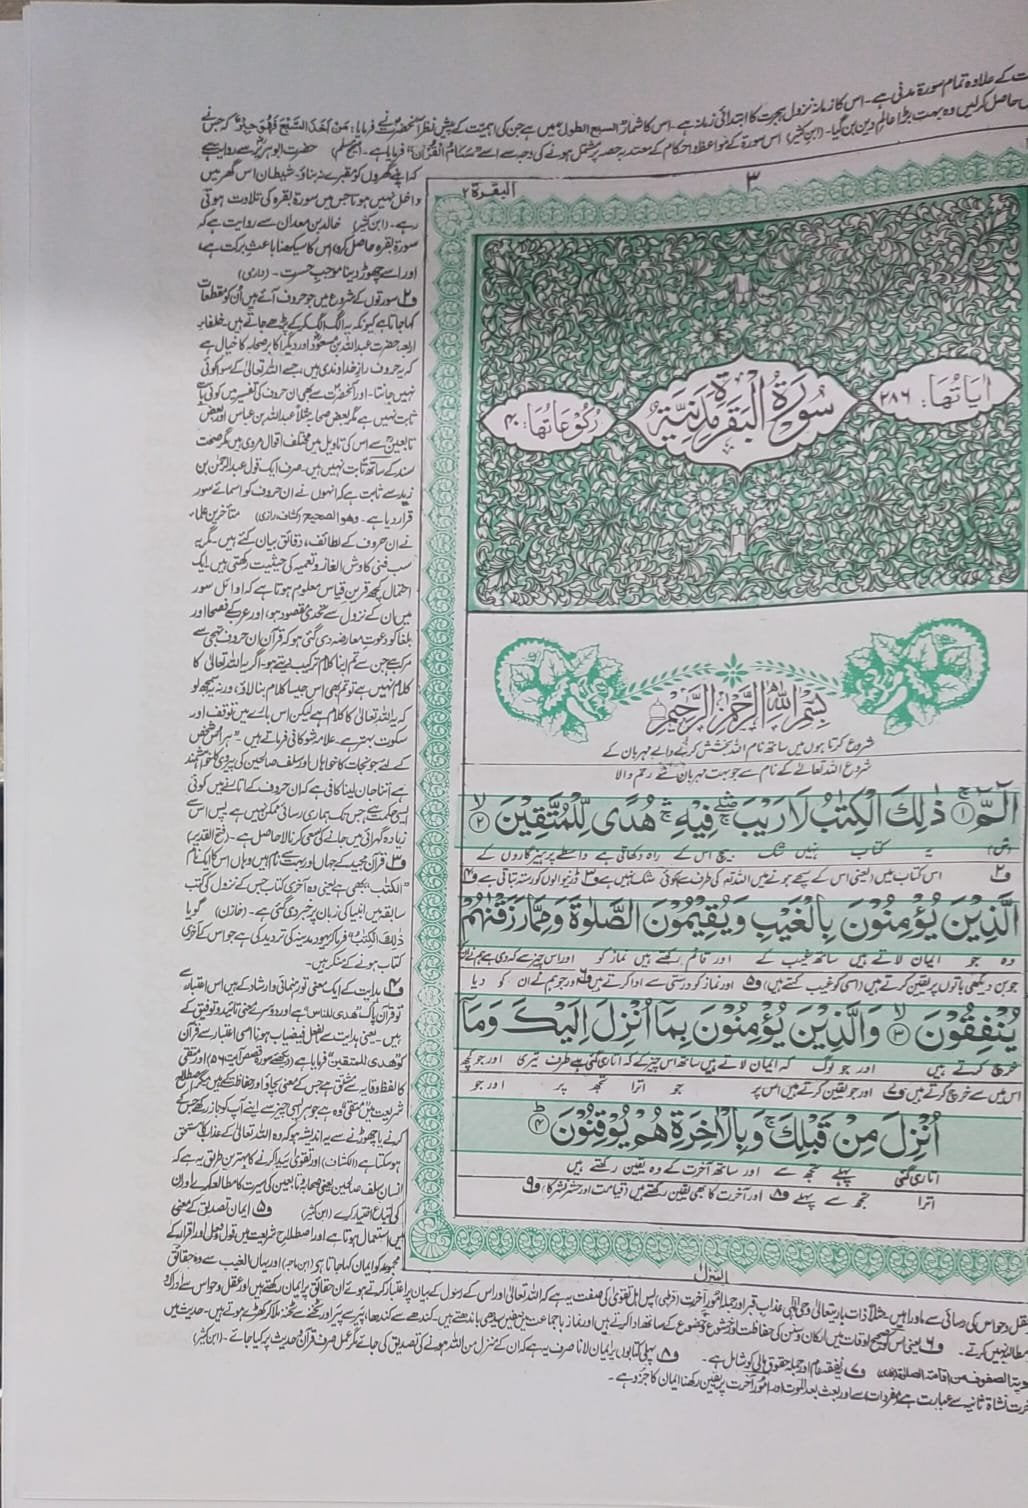 ت کے علاوہ تمام سورۃ مدنی ہے۔ اس کا زمانہ نزول ہجرت کا ابتدائی زمانہ ہے۔ اس کا شمار السبع الطول میں ہے جن کی اہمیت کے پیش نظر آنحضرت نے فرمایا: مَنْ اَخَذَ السَّبْعَ فَهُوَ حِبْرٌ کہ جس نے
حاصل کر لیں وہ بہت بڑا عالم دین بن گیا۔ (ابن کثیر) اس سورۃ کے مواعظ و احکام کے معتد بہ حصہ پر مشتمل ہونے کی وجہ سے اسے "سنام القرآن" فرمایا ہے۔ (صحیح مسلم) حضرت ابوہریرہ سے روایت ہے
کہ اپنے گھروں کو مقبرے نہ بناؤ۔ شیطان اس گھر میں
داخل نہیں ہوتا جس میں سورۃ بقرہ کی تلاوت ہوتی
رہے۔ (ابن کثیر) خالد بن معدان سے روایت ہے کہ
سورۃ بقرہ حاصل کرو اس کا سیکھنا باعث برکت ہے،
اور اسے چھوڑ دینا موجب حسرت۔ (دارمی)
ف۲ سورتوں کے شروع میں جو حروف آئے ہیں اُن کو مقطعات
کہا جاتا ہے کیونکہ یہ الگ الگ کر کے پڑھے جاتے ہیں۔ خلفاء
اربعہ حضرت عبداللہ بن مسعود اور دیگر اکابر صحابہ کا خیال ہے
کہ یہ حروف راز خداوندی ہیں، جسے اللہ تعالیٰ کے سوا کوئی
نہیں جانتا۔ اور آنحضرت سے بھی ان حروف کی تفسیر میں کوئی بات
ثابت نہیں ہے مگر بعض صحابہ مثلاً عبداللہ بن عباس اور بعض
تابعین سے اس کی تاویل میں مختلف اقوال مروی ہیں مگر صحت
سند کے ساتھ ثابت نہیں ہیں۔ صرف ایک قول عبدالرحمٰن بن
زید سے ثابت ہے کہ انہوں نے ان حروف کو اسمائے سور
قرار دیا ہے۔ وهو الصحیح (کشاف، رازی) متأخرین علماء
نے ان حروف کے لطائف، دقائق بیان کئے ہیں۔ مگر یہ
سب فنی کاوش الغاز و تعمیہ کی حیثیت رکھتی ہیں۔ ایک
احتمال کچھ قرین قیاس معلوم ہوتا ہے کہ اوائل سور
میں ان کے نزول سے تحدی مقصود ہو، اور عرب کے فصحا اور
بلغا کو دعوت معارضہ دی گئی ہو کہ قرآن ان حروف تہجی سے
مرکب ہے جن سے تم اپنا کلام ترکیب دیتے ہو۔ اگر یہ اللہ تعالیٰ کا
کلام نہیں ہے تو تم بھی اس جیسا کلام بنا لاؤ، ورنہ سمجھ لو
کہ یہ اللہ تعالیٰ کا کلام ہے لیکن اس بارے میں توقف اور
سکوت بہتر ہے۔ علامہ شوکانی فرماتے ہیں۔ "ہر اُس شخص
کے لئے جو نجات کا خواہاں اور سلف صالحین کی پیروی کا خواہشمند
ہے اتنا جان لینا کافی ہے کہ ان حروف کے اتارنے میں کوئی
ایسی حکمت ہے جس تک ہماری رسائی ممکن نہیں ہے پس اس سے
زیادہ گہرائی میں جانے کی سعی کرنا لاحاصل ہے۔ (فتح القدیر)
ف۳ قرآن مجید کے جہاں اور بہت سے نام ہیں وہاں اس کا ایک نام
"الکتٰب" بھی ہے یعنی وہ آخری کتاب جس کے نزول کی کتب
سابقہ میں انبیا کی زبان پر خبر دی گئی ہے۔ (خازن) گویا
ذٰلِكَ الْكِتٰبُ فرما کر یہود مدینہ کی تردید کی ہے جو اس کے آخری
کتاب ہونے کے منکر ہیں۔
ف۴ ہدایت کے ایک معنی تو رہنمائی و ارشاد کے ہیں اس اعتبار سے
تو قرآن پاک "هدى للناس" ہے اور دوسرے معنی تائید و توفیق کے
ہیں۔ یعنی ہدایت سے بفعل فیضیاب ہونا اسی اعتبار سے قرآن
کو "هدى للمتقين" فرمایا ہے (دیکھئے سورہ قصص آیت ۵۶) اور متقی
کا لفظ وقایہ سے مشتق ہے جس کے معنی بچاؤ اور حفاظت کے ہیں مگر اصطلاح
شریعت میں "متقی" وہ ہے جو ہر ایسی چیز سے اپنے آپ کو باز رکھے جس کے
کرنے یا چھوڑنے سے یہ اندیشہ ہو کہ وہ اللہ تعالیٰ کے عذاب کا مستحق
ہو سکتا ہے (الکشاف) اور تقویٰ پیدا کرنے کا بہترین طریق یہ ہے کہ
انسان سلف صالحین یعنی صحابہ و تابعین کی سیرت کا مطالعہ کرے اور ان
کی اتباع اختیار کرے (ابن کثیر) ف۵ ایمان تصدیق کے معنی
میں استعمال ہوتا ہے اور اصطلاح شریعت میں قول و عمل اور اقرار کے
مجموعہ کو ایمان کہا جاتا ہے (ابن ماجہ) اور یہاں الغیب سے وہ حقائق
البقرة ۲
۳
اٰيَاتُهَا: ۲۸۶
سُوْرَةُ الْبَقَرَةِ مَدَنِيَّةٌ
رُكُوْعَاتُهَا: ۴۰
بِسْمِ اللّٰهِ الرَّحْمٰنِ الرَّحِيْمِ
شروع کرتا ہوں میں ساتھ نام اللہ بخشش کرنے والے مہربان کے
شروع اللہ تعالیٰ کے نام سے جو بہت مہربان ہے رحم والا
الٓمّٓ ۚ۝۱ ذٰلِكَ الْكِتٰبُ لَا رَيْبَ ۛۖ فِيْهِ ۛۚ هُدًى لِّلْمُتَّقِيْنَ ۙ۝۲
یہ کتاب نہیں شک بیچ اس کے راہ دکھاتی ہے واسطے پرہیزگاروں کے
ف۲ اس کتاب میں (یعنی اس کے سچے ہونے میں اللہ کی طرف سے) کوئی شک نہیں ہے ف۳ ڈرنیوالوں کو رستہ بتاتی ہے ف۴
الَّذِيْنَ يُؤْمِنُوْنَ بِالْغَيْبِ وَيُقِيْمُوْنَ الصَّلٰوةَ وَمِمَّا رَزَقْنٰهُمْ
وہ جو ایمان لاتے ہیں ساتھ غیب کے اور قائم رکھتے ہیں نماز کو اور اس چیز سے کہ دی ہے ہم نے ان کو
جو بن دیکھی باتوں پر یقین کرتے ہیں (اسی کو غیب کہتے ہیں) ف۵ اور نماز کو درستی سے ادا کرتے ہیں ف۶ اور جو ہم نے ان کو دیا
يُنْفِقُوْنَ ۙ۝۳ وَالَّذِيْنَ يُؤْمِنُوْنَ بِمَآ اُنْزِلَ اِلَيْكَ وَمَآ
خرچ کرتے ہیں اور جو لوگ کہ ایمان لاتے ہیں ساتھ اس چیز کے کہ اتاری گئی ہے طرف تیری اور جو کچھ
اس میں سے خرچ کرتے ہیں ف۷ اور جو یقین کرتے ہیں اس پر جو اترا تجھ پر اور جو
اُنْزِلَ مِنْ قَبْلِكَ ۚ وَبِالْاٰخِرَةِ هُمْ يُوْقِنُوْنَ ۝۴
اتاری گئی پہلے تجھ سے اور ساتھ آخرت کے وہ یقین رکھتے ہیں
اترا تجھ سے پہلے ف۸ اور آخرت کا بھی یقین رکھتے ہیں (قیامت اور حشر نشر کا) ف۹
المنزل
عقل و حواس کی رسائی سے ماورا ہیں۔ مثلاً ذات باری تعالیٰ وحی الٰہی عذاب قبر اور جملہ امور آخرت (قرطبی) پس اہل تقویٰ کی صفت یہ ہے کہ اللہ تعالیٰ اور اس کے رسول کے بیان پر اعتبار کرتے ہوئے ان حقائق پر ایمان رکھتے ہیں اور عقل و حواس سے ادراک
مطالبہ نہیں کرتے۔ ف۶ یعنی اس کو صحیح اوقات میں ارکان و سنن کی حفاظت اور خشوع و خضوع کے ساتھ ادا کرتے ہیں اور نماز با جماعت میں صفیں سیدھی باندھتے ہیں، کندھے سے کندھا، پیر سے پیر اور ٹخنے سے ٹخنہ ملا کر کھڑے ہوتے ہیں۔ حدیث میں
سوية الصفوف من اقامة الصلاة ف۷ یہ نفقہ عام اور جملہ حقوق مالی کو شامل ہے۔ ف۸ پہلی کتابوں پر ایمان لانا صرف یہ ہے کہ ان کے منزل من اللہ ہونے کی تصدیق کی جائے مگر عمل صرف قرآن و حدیث پر کیا جائے۔ (ابن کثیر)
آخرت نشاۃ ثانیہ سے عبارت ہے (مفردات) اور بعث بعد الموت اور امور آخرت پر یقین رکھنا ایمان کا جزو ہے۔